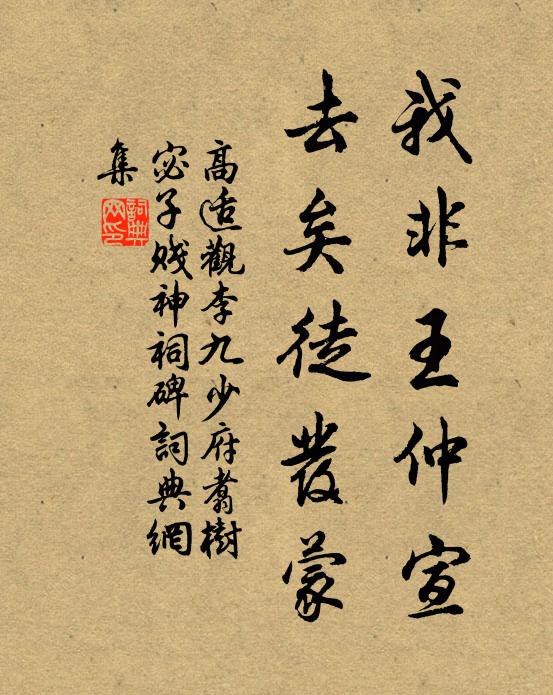 我非王仲宣
去矣徒發蒙
高适觀李九少府翥樹
宓子賤神祠碑詞典網
集
詞典
网印